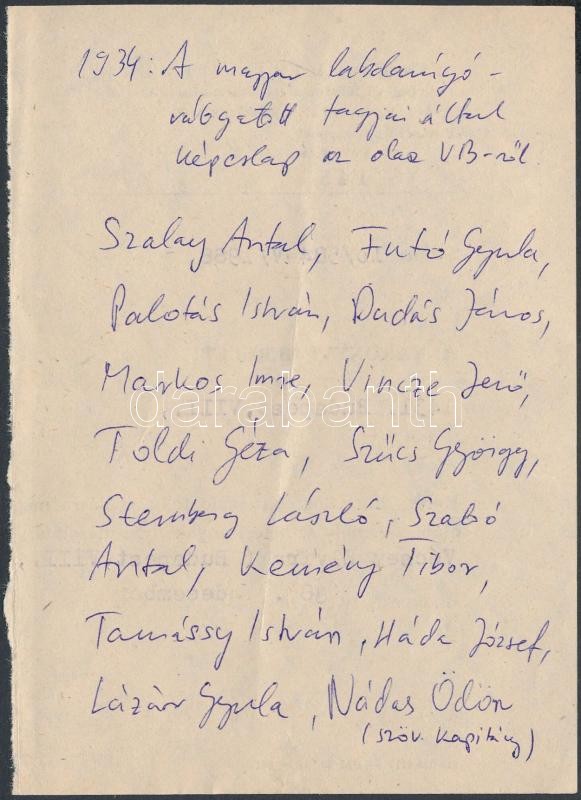 1934: A magyar labdarúgó-
válogatott tagjai által
képeslap az olasz VB-ről.
Szalay Antal, Futó Gyula,
Palotás István, Dudás János,
Markos Imre, Vincze Jenő,
darabanth
Toldi Géza, Szűcs György,
Sternberg László, Szabó
Antal, Kemény Tibor,
Tamássy István, Háda József,
Lázár Gyula, Nádas Ödön
(szöv. kapitány)